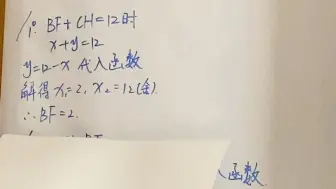 1°: BF+CH=12时
x+y=12
y=12-x 代入函数
解得 x₁=2, x₂=12(舍).
∴ BF=2.
函数